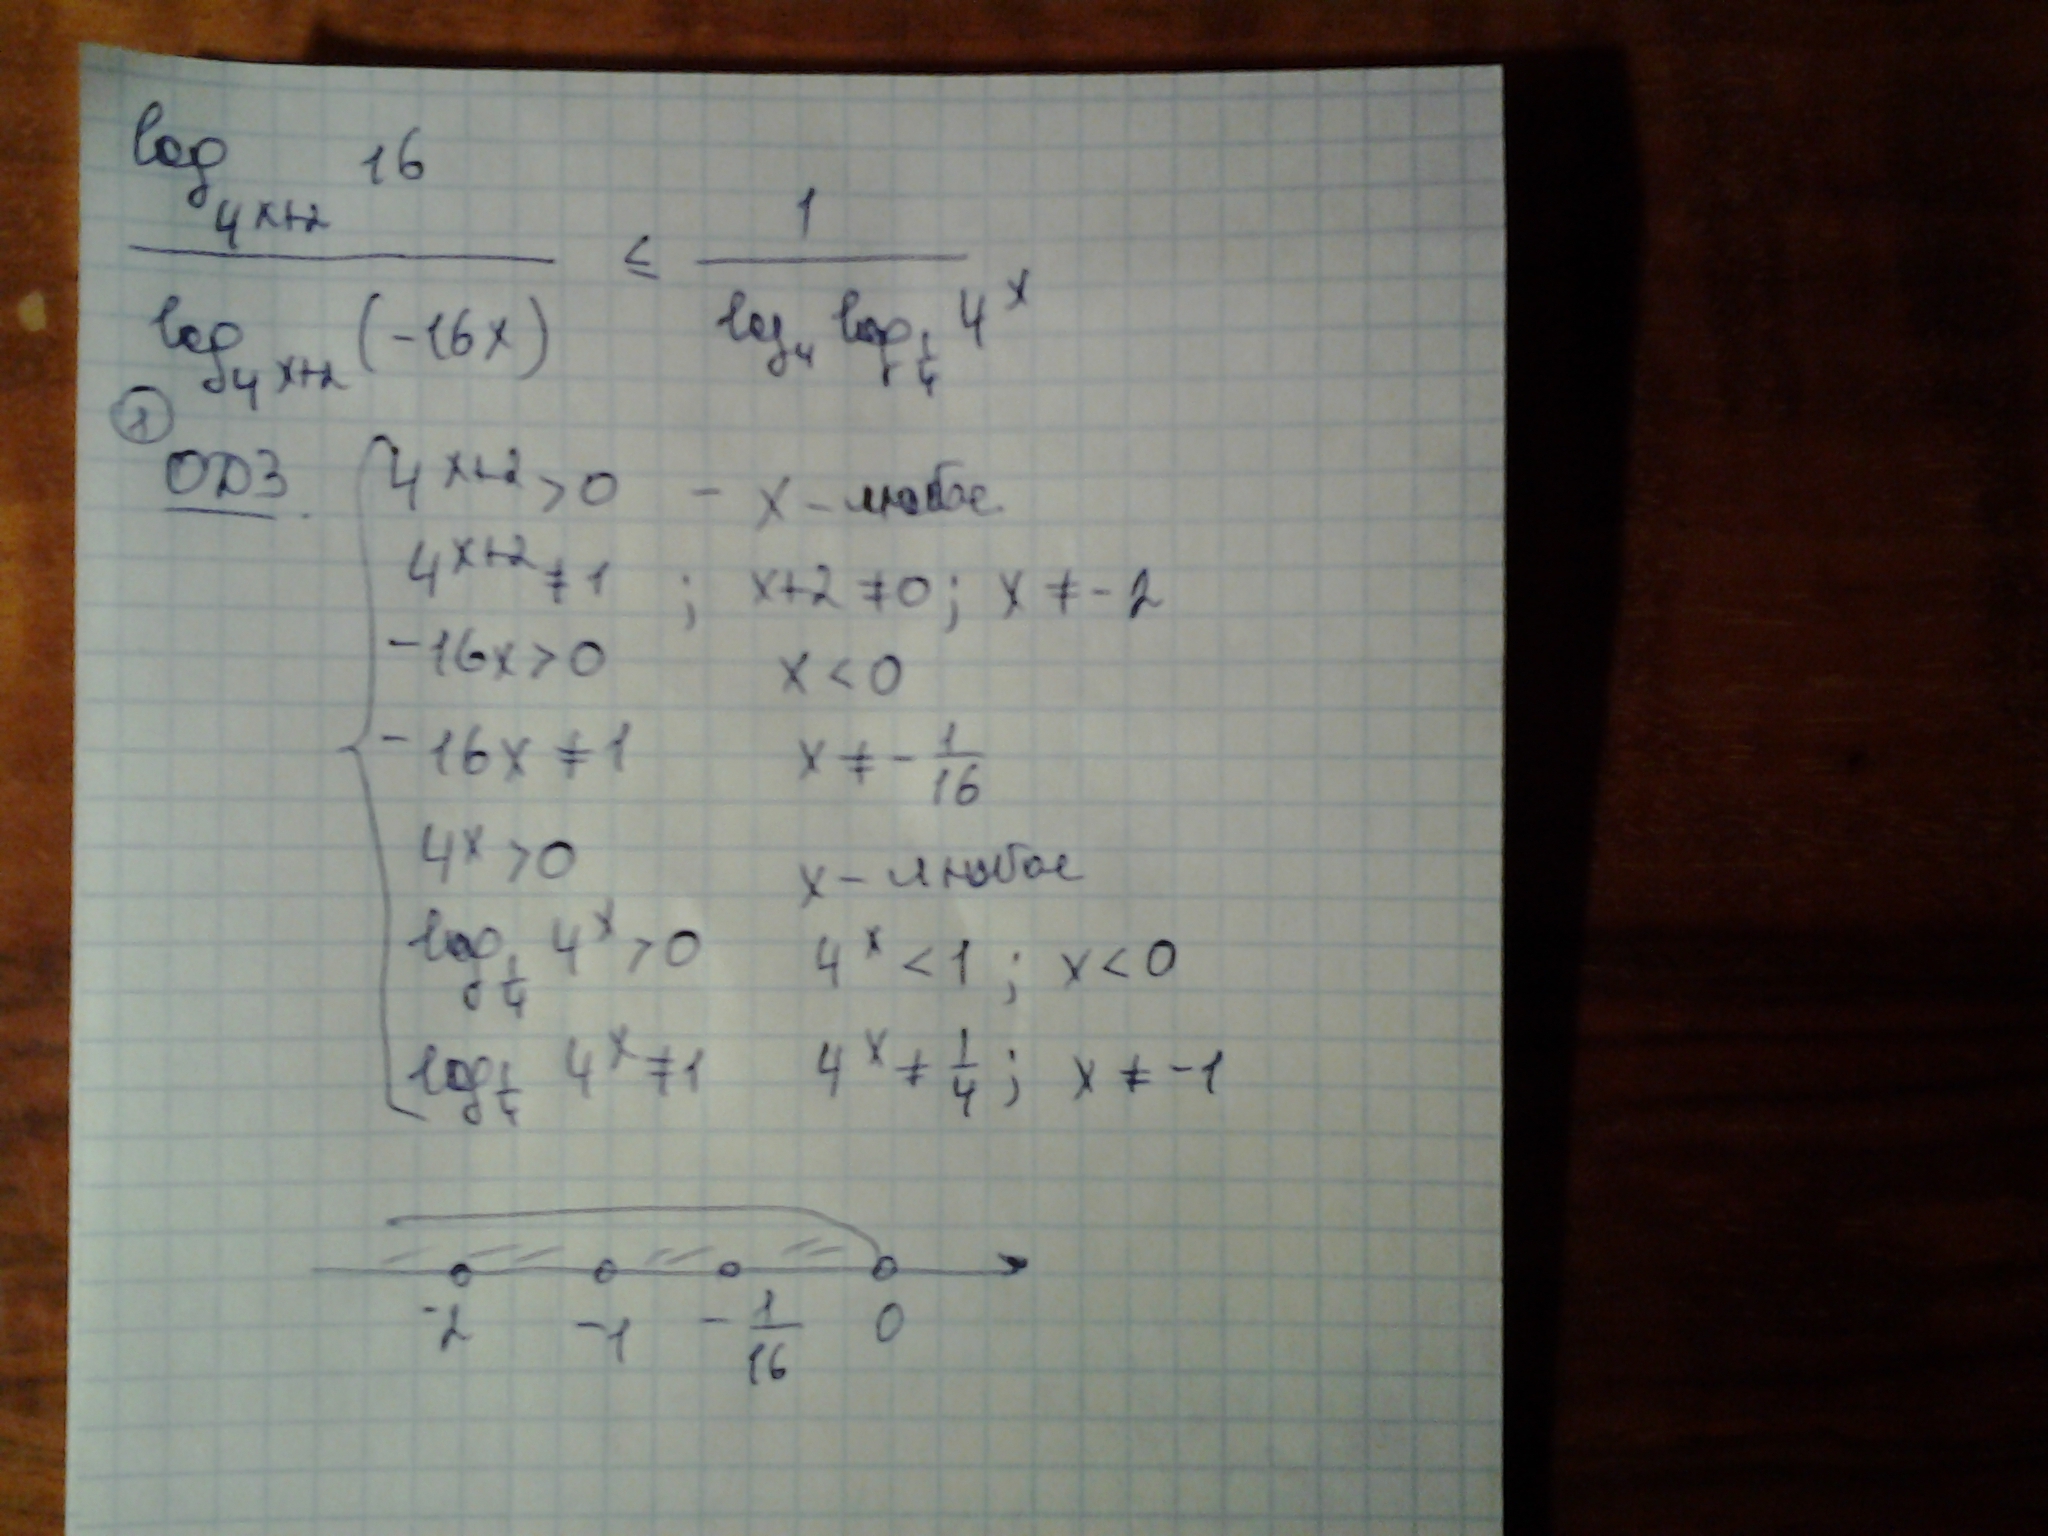 log_{4^{x+2}} 16 / log_{4^{x+2}} (-16x) ≤ 1 / log_4 log_{1/4} 4^x
1)
ОДЗ.
4^{x+2} > 0 - x - любое
4^{x+2} ≠ 1 ; x+2 ≠ 0; x ≠ -2
-16x > 0 x < 0
-16x ≠ 1 x ≠ -1/16
4^x > 0 x - любое
log_{1/4} 4^x > 0 4^x < 1 ; x < 0
log_{1/4} 4^x ≠ 1 4^x ≠ 1/4 ; x ≠ -1
-2 -1 -1/16 0